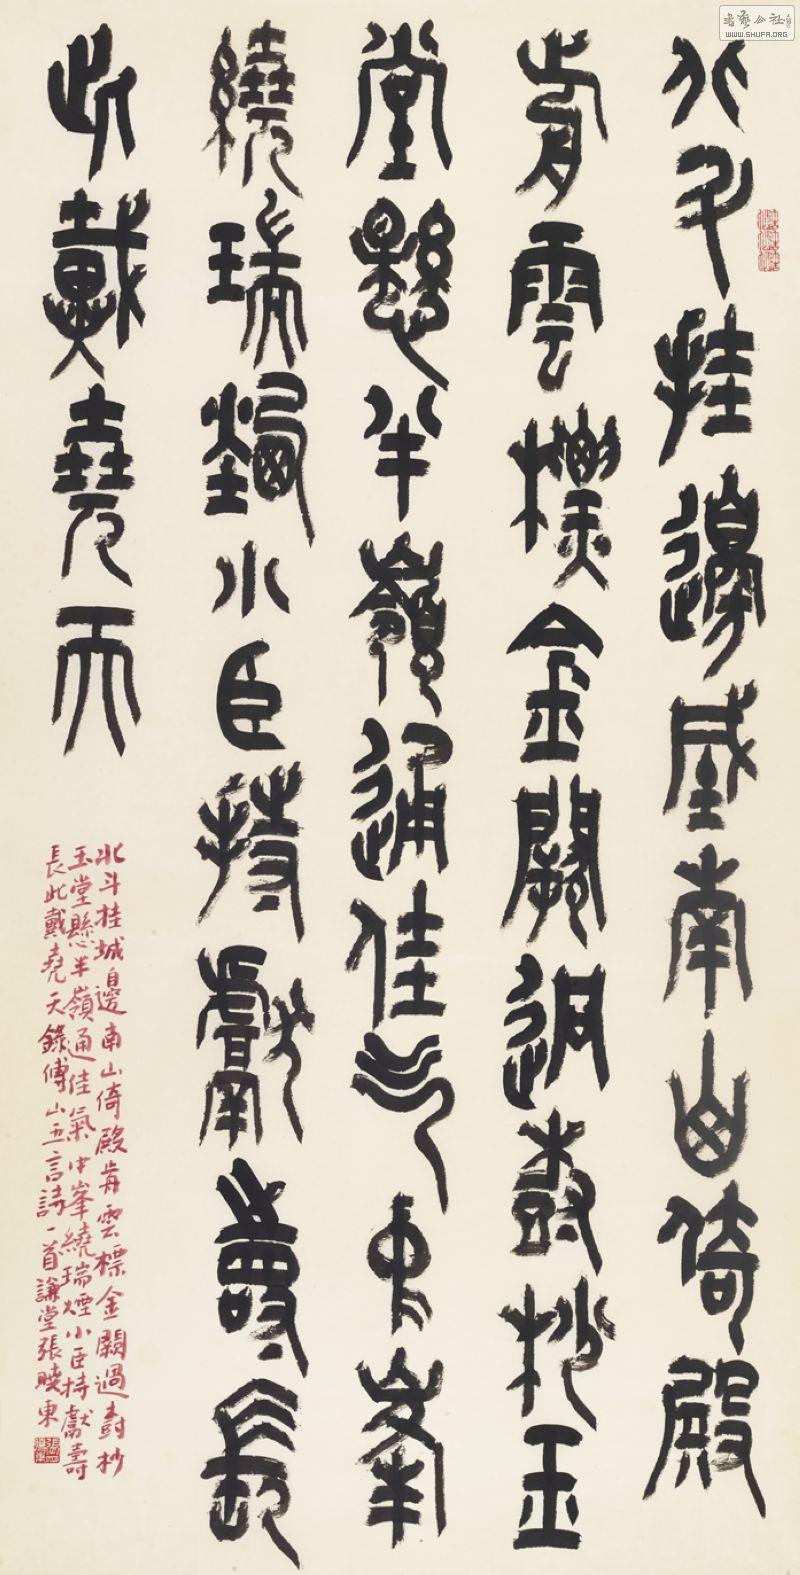 北斗挂邊城南山倚殿
歬雲標金闕迥尌杪玉
堂懸半嶺通佳气中峯
繞瑞煙小臣持獻壽長
此戴堯天
北斗挂城邊南山倚殿歬雲標金闕迥尌杪
玉堂懸半嶺通佳氣中峯繞瑞煙小臣持獻壽
長此戴堯天錄傅山五言詩一首謙堂張曉東
WWW.SHUFA.ORG